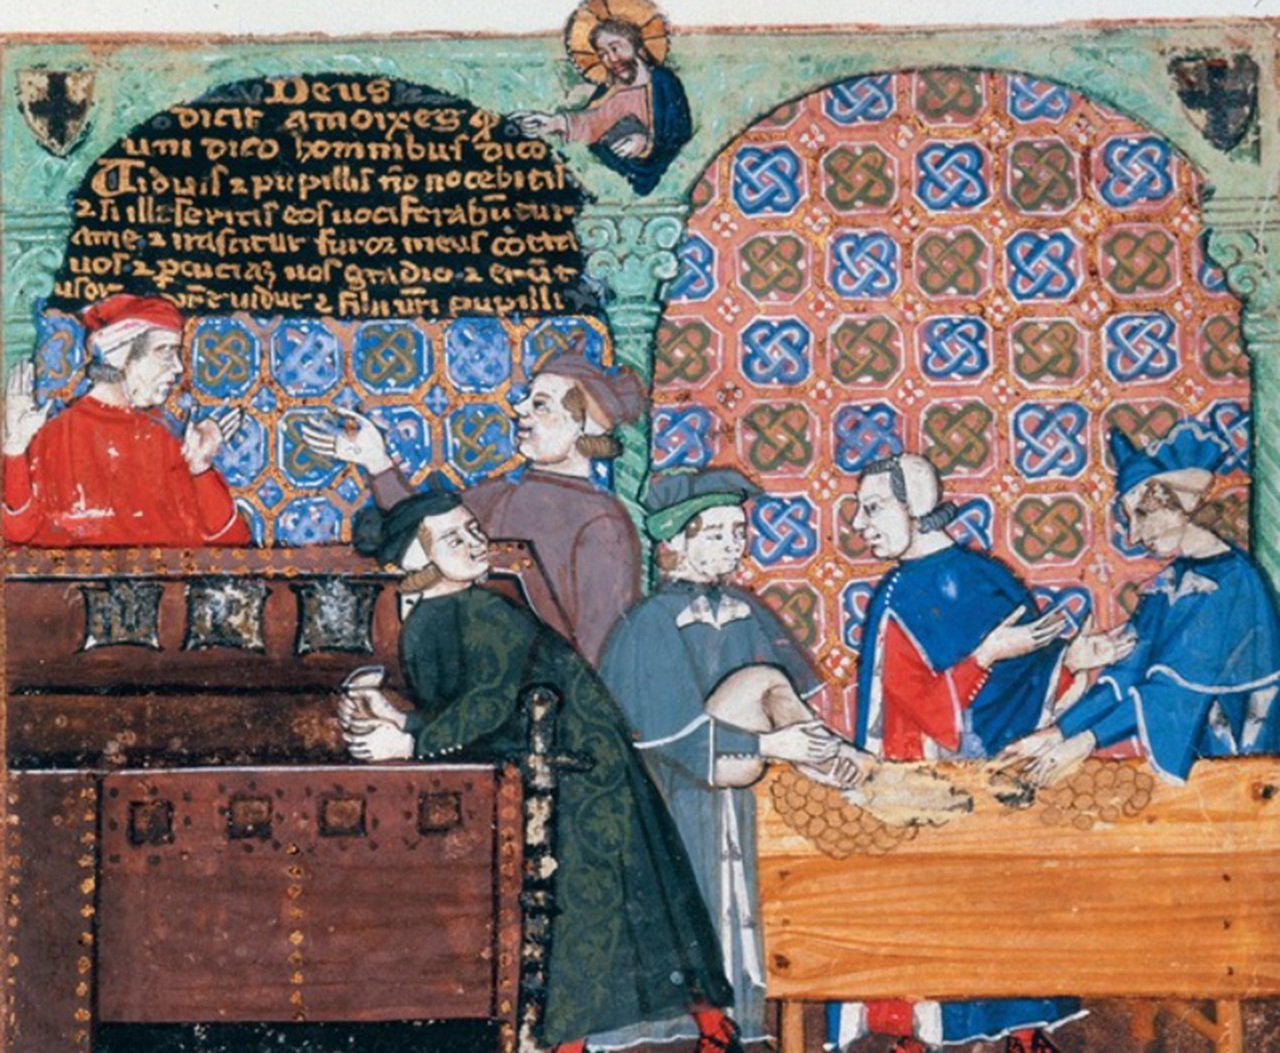 Deus
dicit amoixes q
uni dico hominibus dico
Uiduis ⁊ pupillis n̄o nocebitis
⁊ si illeseritis eos uociferabūtur
ame ⁊ irascetur furor meus cōtra
uos ⁊ ꝑcuciaʒ uos gladio ⁊ erūt
uidue ⁊ filii ur̄i pupilli